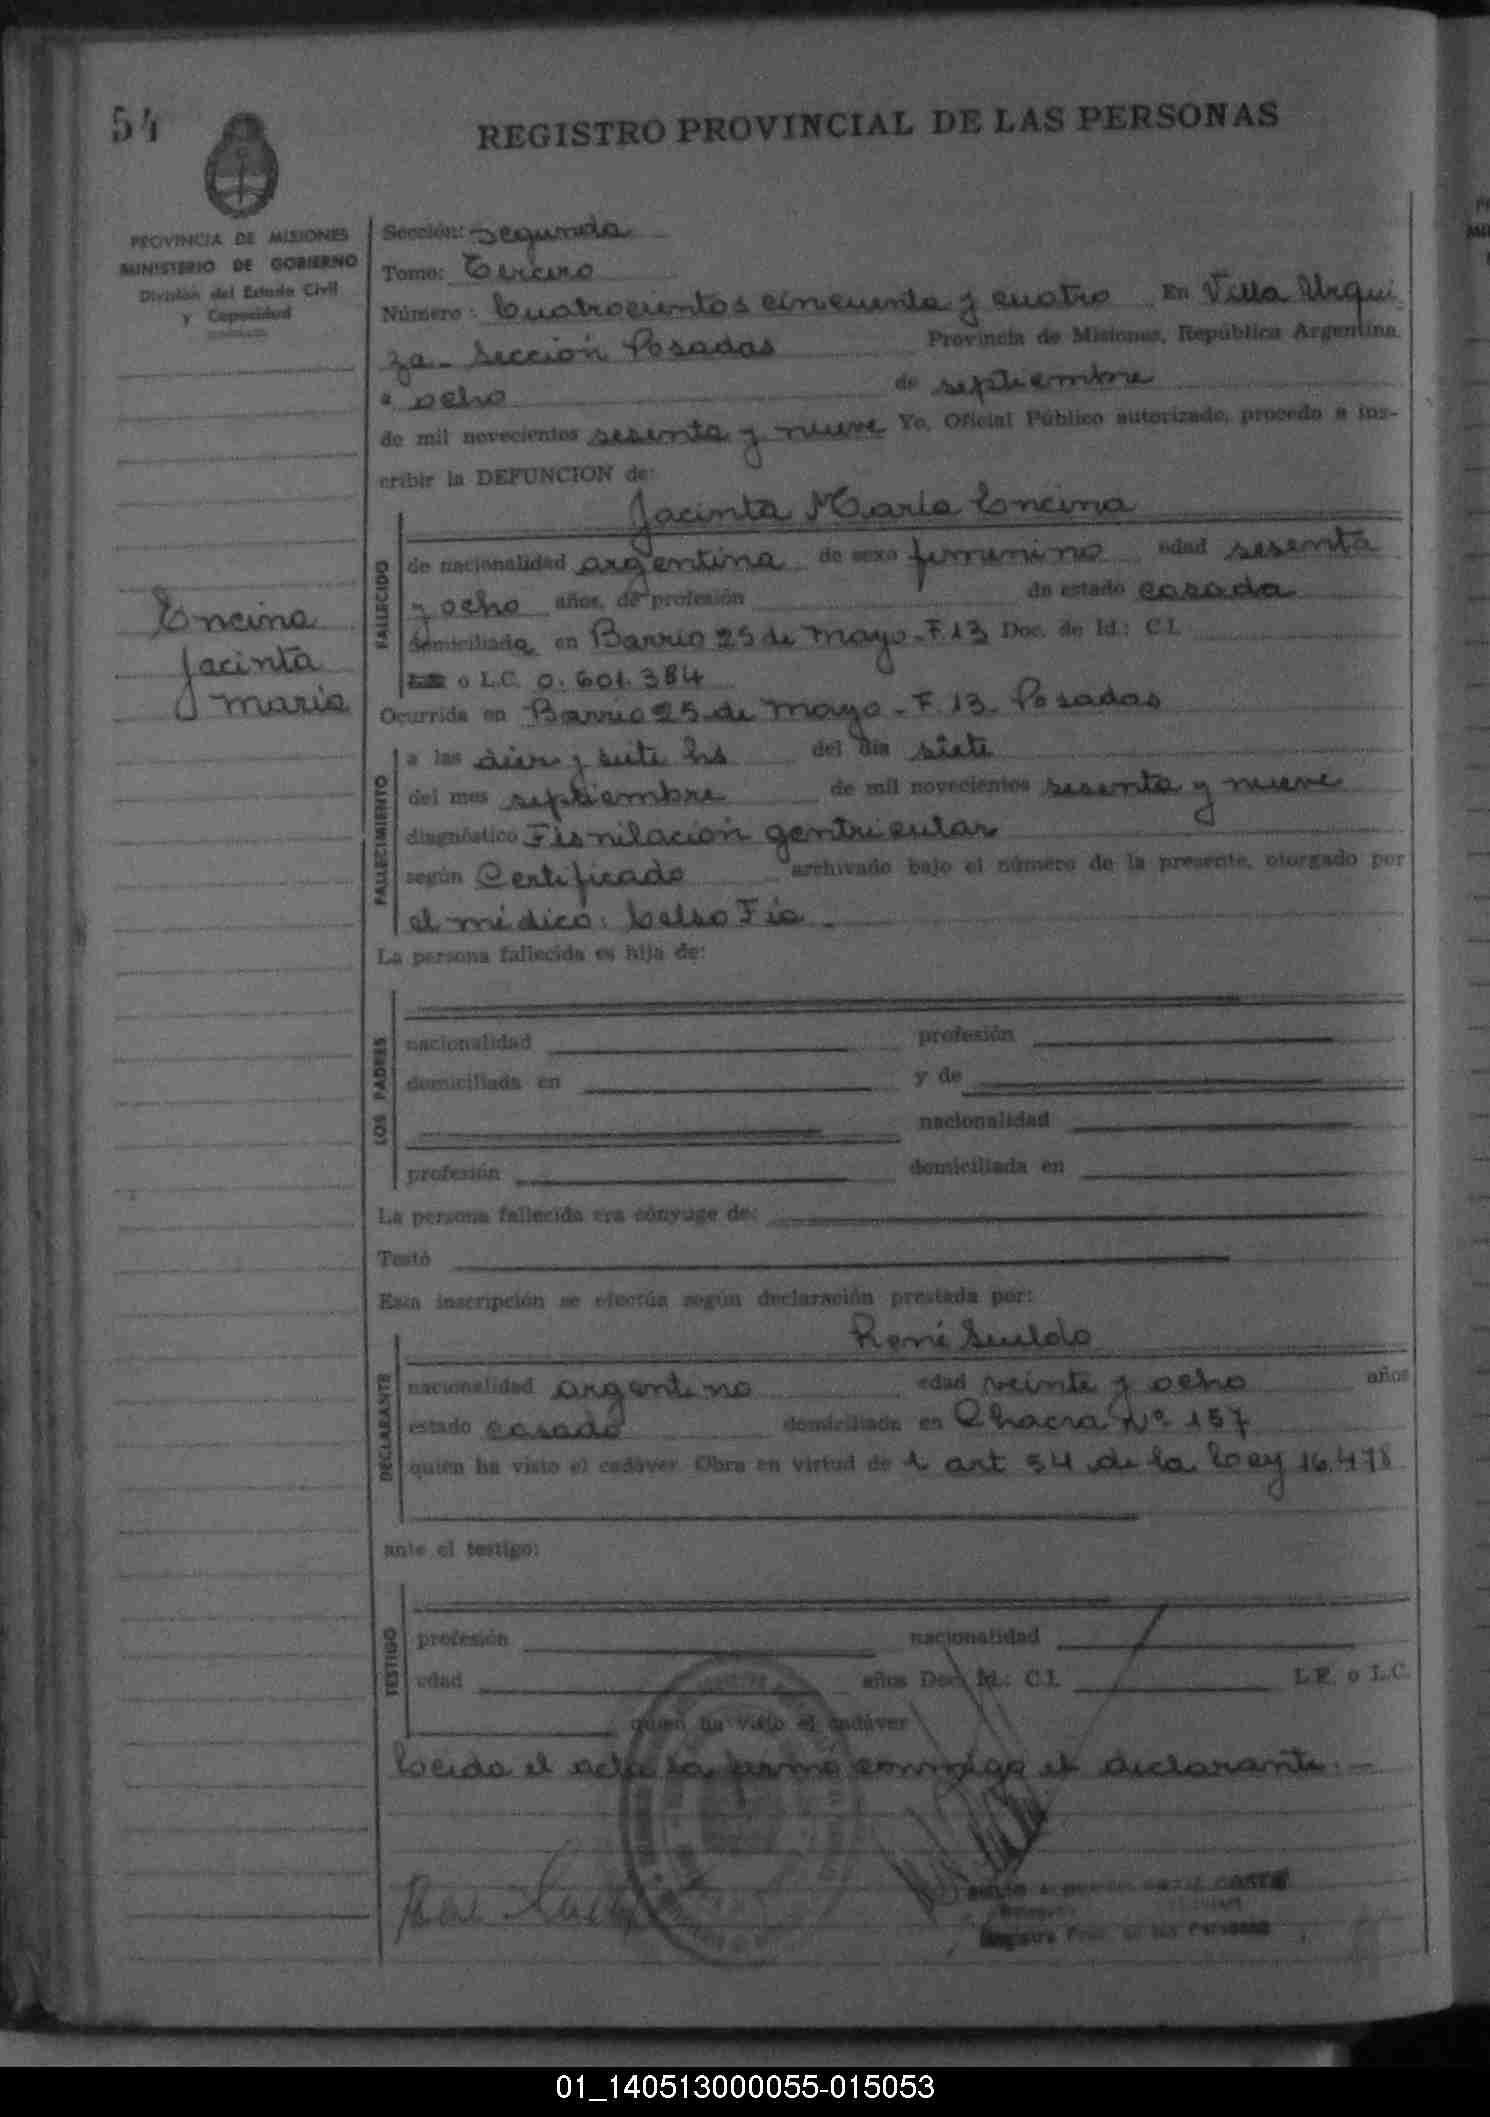 54
REGISTRO PROVINCIAL DE LAS PERSONAS
PROVINCIA DE MISIONES
MINISTERIO DE GOBIERNO
División del Estado Civil
y Capacidad
Sección: Segunda
Tomo: Tercero
Número: Cuatrocientos cincuenta y cuatro En Villa Urqui
za - Sección Posadas Provincia de Misiones, República Argentina,
a ocho de septiembre
de mil novecientos sesenta y nueve Yo, Oficial Público autorizado, procedo a ins-
cribir la DEFUNCION de:
Jacinta María Encina
Encina
Jacinta
María
FALLECIDO
de nacionalidad argentina de sexo femenino edad sesenta
y ocho años, de profesión de estado casada
domiciliada en Barrio 25 de Mayo - F. 13 Doc. de Id.: C.I.
o L.C. 0.601.384
Ocurrida en Barrio 25 de Mayo - F. 13 - Posadas
FALLECIMIENTO
a las diez y siete hs del día siete
del mes septiembre de mil novecientos sesenta y nueve
diagnóstico Fisnilación gentricular
según Certificado archivado bajo el número de la presente, otorgado por
el médico: Celso Fia -
La persona fallecida es hija de:
LOS PADRES
nacionalidad profesión
domiciliada en y de
nacionalidad
profesión domiciliada en
La persona fallecida era cónyuge de:
Testó
Esta inscripción se efectúa según declaración prestada por:
René Sueldo
DECLARANTE
nacionalidad argentino edad veinte y ocho años
estado casado domiciliado en Chacra Nº 157
quien ha visto el cadáver. Obra en virtud de art 54 de la Ley 16.478
ante el testigo:
TESTIGO
profesión nacionalidad
edad años Doc. Id.: C.I. L.E. o L.C.
quien ha visto el cadáver
Leída el acta la firma conmigo el declarante. -
Registro Prov. de las Personas
01_140513000055-015053